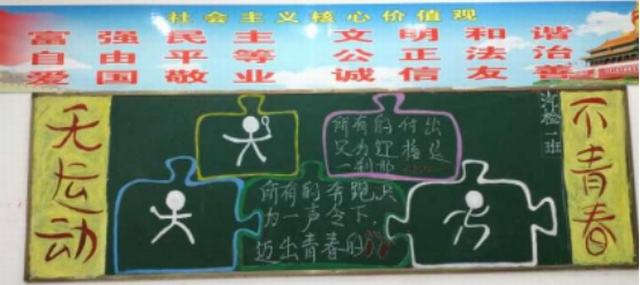 社会主义核心价值观
富强 民主 文明 和谐
自由 平等 公正 法治
爱国 敬业 诚信 友善
无运动
不青春
汽检一班
所有的付出
只为
一刹那
所有的奔跑只
为一声令下,
迈出青春的